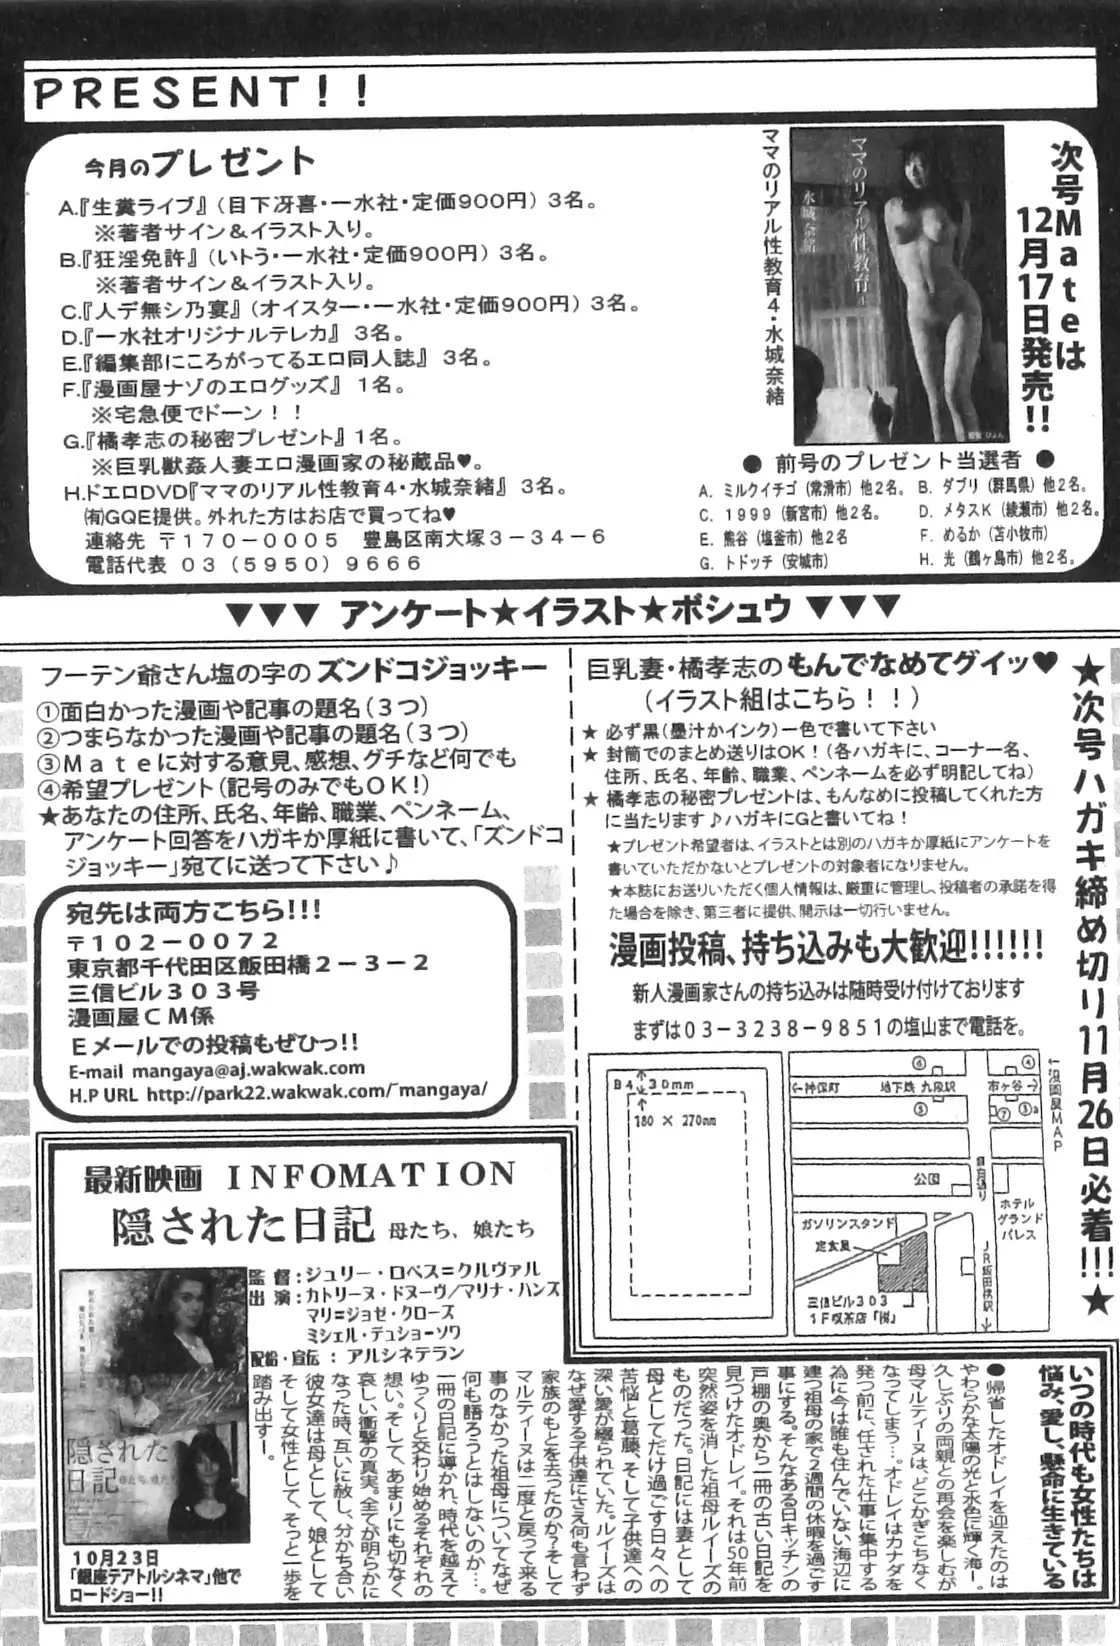 PRESENT!!
今月のプレゼント
A.『生糞ライブ』(目下冴喜・一水社・定価900円) 3名。
※著者サイン&イラスト入り。
B.『狂淫免許』(いトう・一水社・定価900円) 3名。
※著者サイン&イラスト入り。
C.『人デ無シ乃宴』(オイスター・一水社・定価900円) 3名。
D.『一水社オリジナルテレカ』 3名。
E.『編集部にころがってるエロ同人誌』 3名。
F.『漫画屋ナゾのエログッズ』 1名。
※宅急便でドーン!!
G.『橘孝志の秘密プレゼント』1名。
※巨乳獣姦人妻エロ漫画家の秘蔵品♥。
H.ドエロDVD『ママのリアル性教育4・水城奈緒』 3名。
㈲GQE提供。外れた方はお店で買ってね♥
連絡先 〒170-0005 豊島区南大塚3-34-6
電話代表 03(5950)9666
ママのリアル性教育4・水城奈緒
ママのリアル性教育4
水城奈緒
次号Mateは
12月17日発売!!
● 前号のプレゼント当選者 ●
A. ミルクイチゴ(常滑市)他2名。 B. ダブリ(群馬県)他2名。
C. 1999(新宮市)他2名。 D. メタスK(綾瀬市)他2名。
E. 熊谷(塩釜市)他2名 F. めるか(苫小牧市)
G. トドッチ(安城市) H. 光(鶴ヶ島市)他2名。
▼▼▼ アンケート★イラスト★ボシュウ ▼▼▼
フーテン爺さん塩の字のズンドコジョッキー
①面白かった漫画や記事の題名(3つ)
②つまらなかった漫画や記事の題名(3つ)
③Mateに対する意見、感想、グチなど何でも
④希望プレゼント(記号のみでもOK!)
★あなたの住所、氏名、年齢、職業、ペンネーム、
アンケート回答をハガキか厚紙に書いて、「ズンドコ
ジョッキー」宛てに送って下さい♪
宛先は両方こちら!!!
〒102-0072
東京都千代田区飯田橋2-3-2
三信ビル303号
漫画屋CM係
Eメールでの投稿もぜひっ!!
E-mail mangaya@aj.wakwak.com
H.P URL http://park22.wakwak.com/~mangaya/
巨乳妻・橘孝志のもんでなめてグイッ♥
(イラスト組はこちら!!)
★ 必ず黒(墨汁かインク)一色で書いて下さい
★ 封筒でのまとめ送りはOK!(各ハガキに、コーナー名、
住所、氏名、年齢、職業、ペンネームを必ず明記してね)
★ 橘孝志の秘密プレゼントは、もんなめに投稿してくれた方
に当たります♪ハガキにGと書いてね!
★プレゼント希望者は、イラストとは別のハガキか厚紙にアンケートを
書いていただかないとプレゼントの対象者になりません。
★本誌にお送りいただく個人情報は、厳重に管理し、投稿者の承諾を得
た場合を除き、第三者に提供、開示は一切行いません。
漫画投稿、持ち込みも大歓迎!!!!!!
新人漫画家さんの持ち込みは随時受け付けております
まずは03-3238-9851の塩山まで電話を。
★次号ハガキ締め切り11月26日必着!!!★
B4 30mm
180 × 270mm
←漫画屋MAP
←神保町
地下鉄 九段駅
市ヶ谷→
⑥
④
⑤
⑦
③a
目白通り
公園
ホテル
グランド
パレス
ガソリンスタンド
定食屋
JR飯田橋駅→
三信ビル303
1F喫茶店『桜』
最新映画 INFOMATION
隠された日記 母たち、娘たち
監督:ジュリー・ロペス=クルヴァル
出演:カトリーヌ・ドヌーヴ/マリナ・ハンズ
マリ=ジョゼ・クローズ
ミシェル・デュショーソワ
配給・宣伝:アルシネテラン
隠された
日記
母たち、娘たち
10月23日
「銀座テアトルシネマ」他で
ロードショー!!
いつの時代も女性たちは
悩み、愛し、懸命に生きている
●帰省したオドレイを迎えたのは
やわらかな太陽の光と水色に輝く海。
久しぶりの両親との再会を楽しむが
母マルティーヌは、どこかぎこちなく
なってしまう…。オドレイはカナダを
発つ前に、任された仕事に集中する
為に今は誰も住んでいない海辺に
建つ祖母の家で2週間の休暇を過ごす
事にする。そんなある日キッチンの
戸棚の奥から一冊の古い日記を
見つけたオドレイ。それは50年前
突然姿を消した祖母ルイーズの
ものだった。日記には妻として
母としてだけ過ごす日々への
苦悩と葛藤、そして子供達への
深い愛が綴られていた。ルイーズは
なぜ愛する子供達にさえ何も言わず
家族のもとを去ったのか?そして
マルティーヌは二度と戻って来る
事のなかった祖母についてなぜ
何も語ろうとはしないのか…。
一冊の日記に導かれ、時代を越えて
ゆっくりと交わり始めるそれぞれの
想い。そして、あまりにも切なく
哀しい衝撃の真実。全てが明らかに
なった時、互いに赦し、分かち合い
彼女達は母として、娘として
そして女性として、そっと一歩を
踏み出すー。